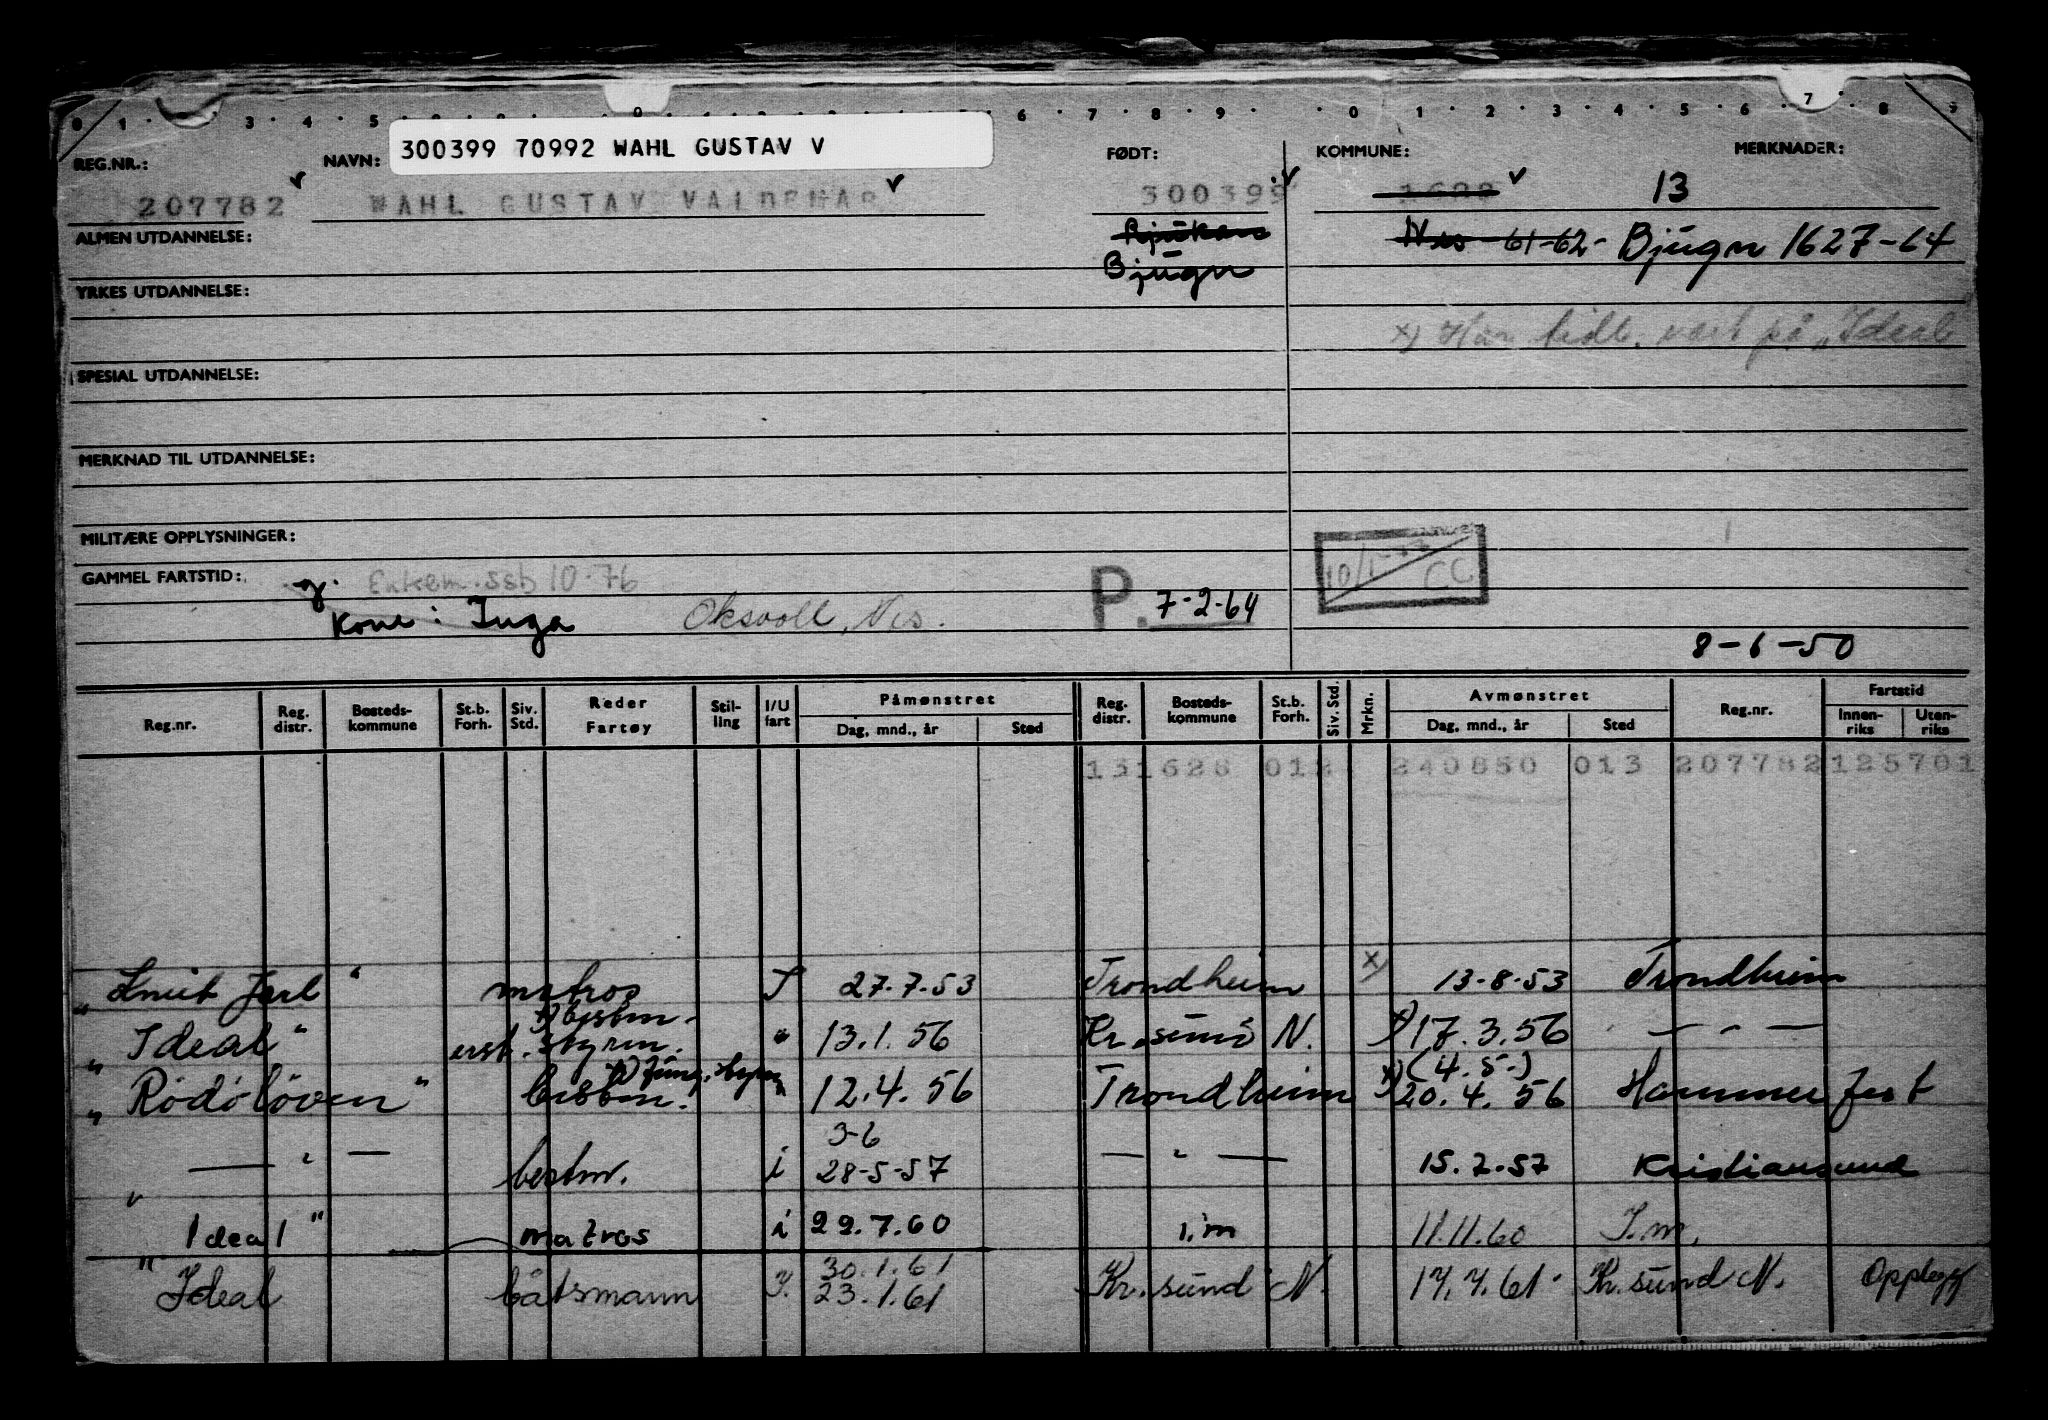 300399 70992 WAHL GUSTAV V
REG.NR.: NAVN: FØDT: KOMMUNE: MERKNADER:
207782 WAHL GUSTAV VALDEMAR 300399 13
ALMEN UTDANNELSE: Bjugn 1627-64
Bjugn
YRKES UTDANNELSE:
x) Har tidl. vært på „Ideal
SPESIAL UTDANNELSE:
MERKNAD TIL UTDANNELSE:
MILITÆRE OPPLYSNINGER:
GAMMEL FARTSTID: g. Enkem. ssb 10-76
Kone: Inga Oksvoll, Nes. P. 7-2-64
8-6-50
Reg.nr. Reg. distr. Bosteds-kommune St.b. Forh. Siv. Std. Reder Fartøy Stil-ling I/U fart Påmønstret Dag, mnd., år Sted Reg. distr. Bosteds-kommune St.b. Forh. Siv. Std. Mrkn. Avmønstret Dag, mnd., år Sted Reg.nr. Fartstid Innen-riks Uten-riks
131628 012 240850 013 207782 125701
„Knut Jarl“ matros I 27.7.53 Trondheim x) 13-8-53 Trondheim
„Ideal“ erst. styrm. " 13.1.56 Kr.sund N. x) 17.3.56 — " —
„Rödölöven“ bestm. 12.4.56 Trondheim x) (4.5-) 20.4.56 Hammerfest
3-6
— " — bestm. i 28-5-57 — " — 15.7.57 Kristiansund
„Ideal“ matros i 22.7.60 i.m 11.11.60 I.m.
30.1.61
"Ideal båtsmann I. 23.1.61 Kr.sund N. 17.7.61 Kr.sund N. Opplegg